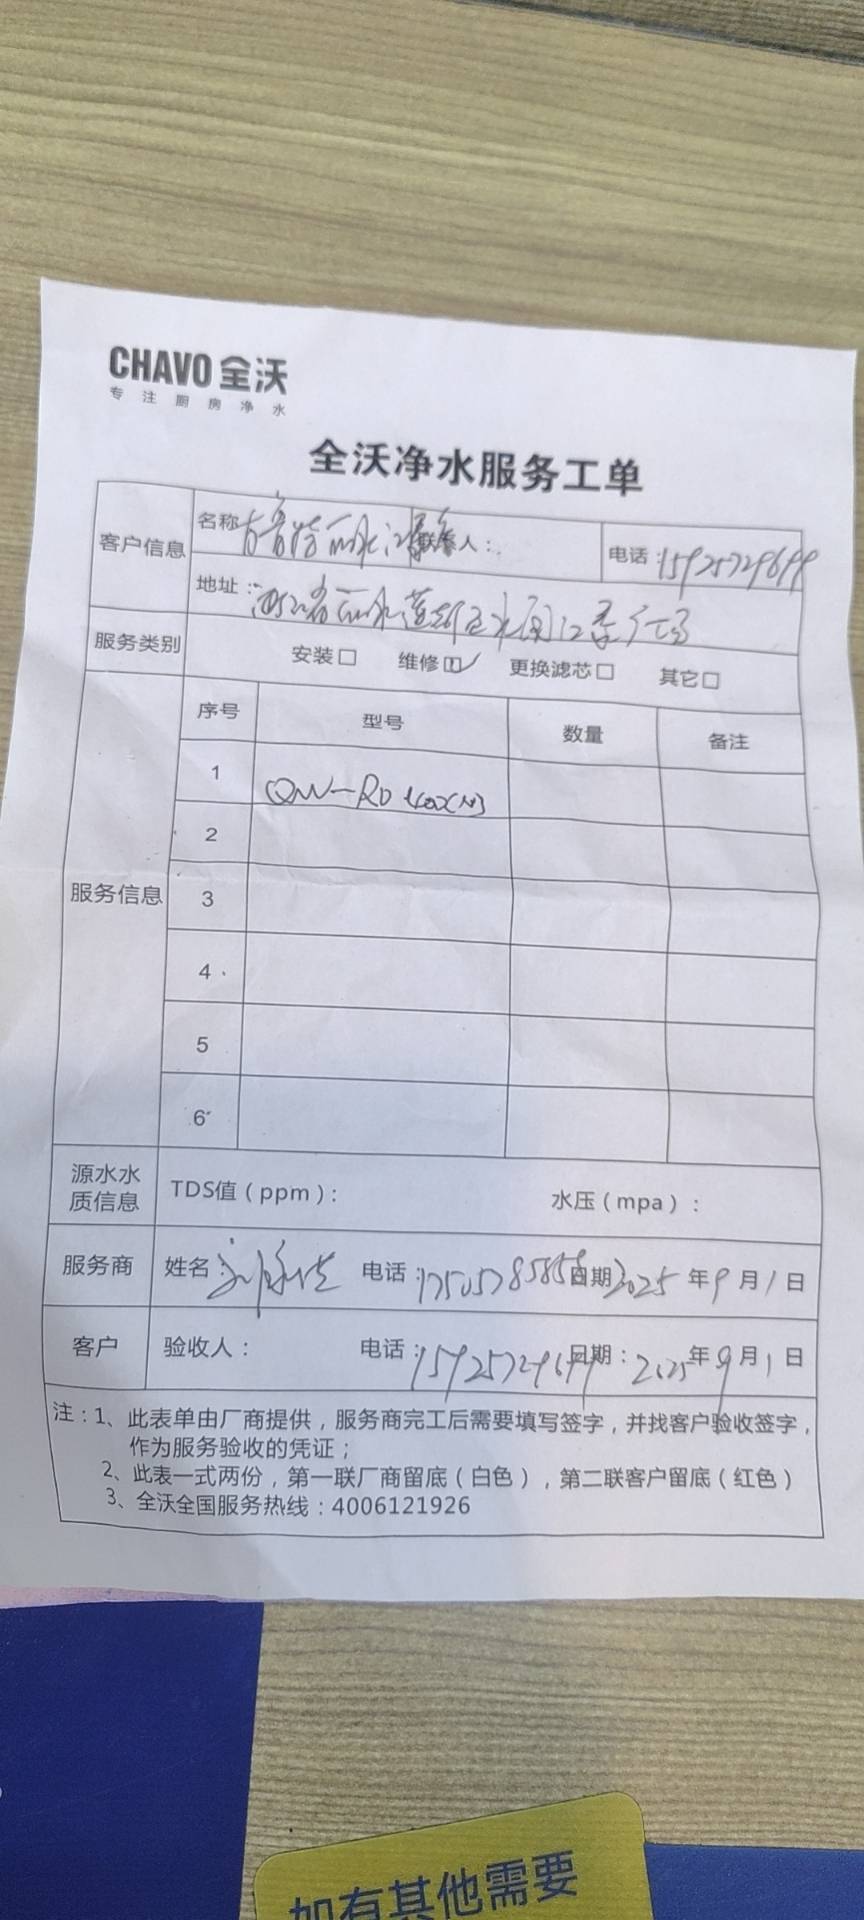 CHAVO 全沃
专注厨房净水
全沃净水服务工单
客户信息 名称 丽水 联系人： 电话：15925729699
地址： 丽水莲都区水阁江 广场
服务类别 安装□ 维修☑ 更换滤芯□ 其它□
服务信息 序号 型号 数量 备注
1 QW-RO
2
3
4
5
6
源水水质信息 TDS值（ppm）： 水压（mpa）：
服务商 姓名： 电话： 日期 2025 年 9 月 1 日
客户 验收人： 电话：15925729699 日期：2025 年 9 月 1 日
注：1、此表单由厂商提供，服务商完工后需要填写签字，并找客户验收签字，
作为服务验收的凭证；
2、此表一式两份，第一联厂商留底（白色），第二联客户留底（红色）
3、全沃全国服务热线：4006121926
如有其他需要